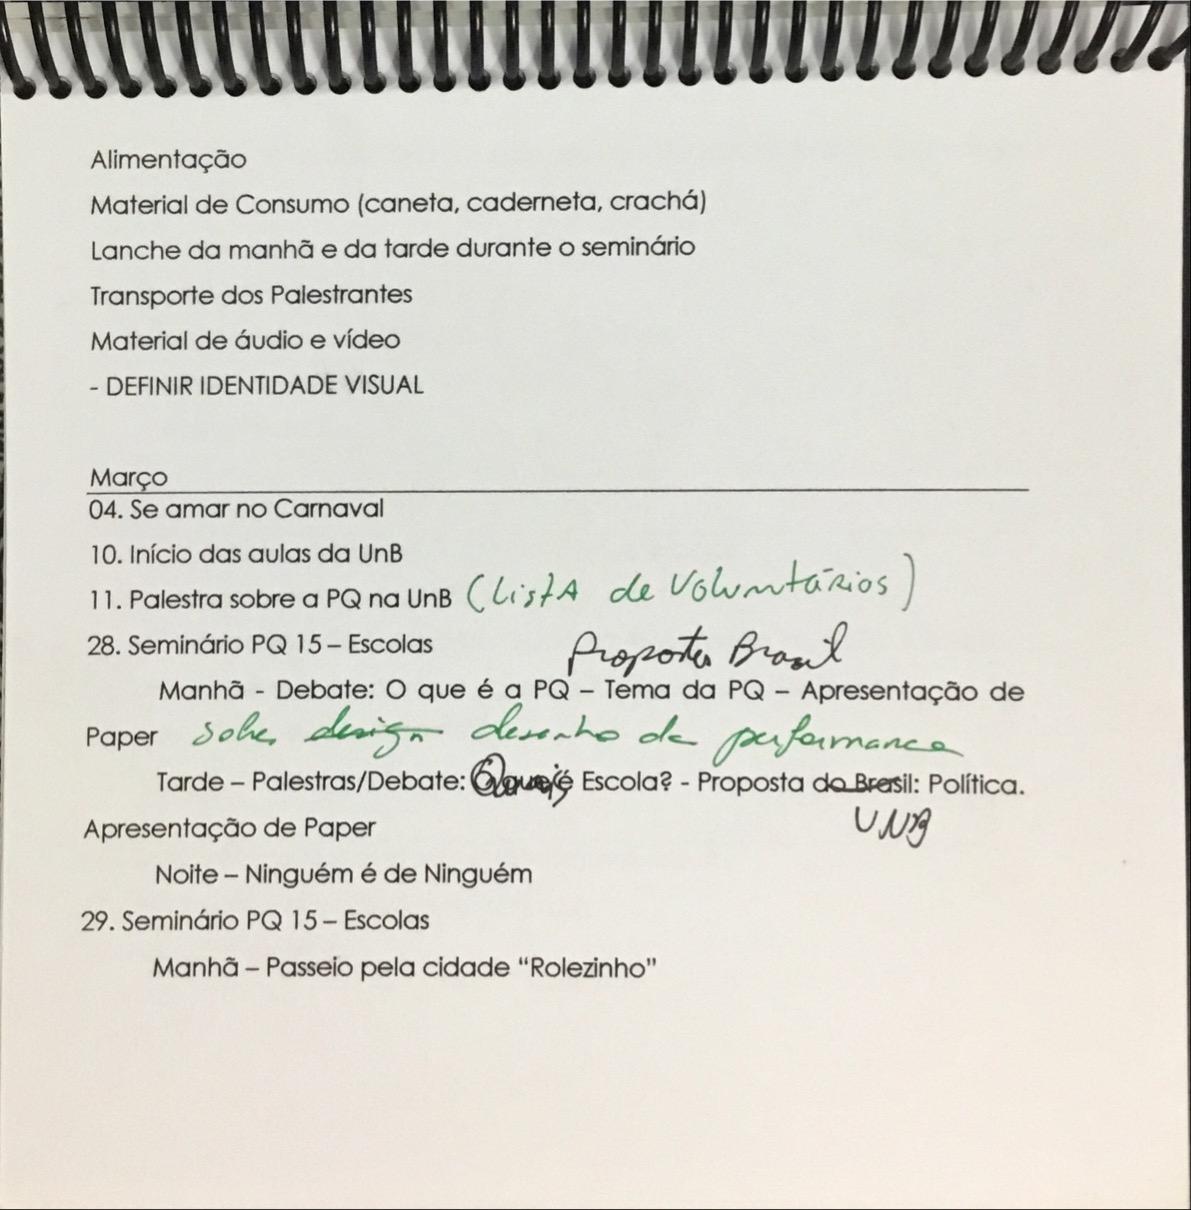 Alimentação
Material de Consumo (caneta, caderneta, crachá)
Lanche da manhã e da tarde durante o seminário
Transporte dos Palestrantes
Material de áudio e vídeo
- DEFINIR IDENTIDADE VISUAL
Março
04. Se amar no Carnaval
10. Início das aulas da UnB
11. Palestra sobre a PQ na UnB (LISTA de Voluntários)
28. Seminário PQ 15 – Escolas
Proposta Brasil
Manhã - Debate: O que é a PQ – Tema da PQ – Apresentação de
Paper sobre design desenho da performance
Tarde – Palestras/Debate: é Escola? - Proposta do Brasil: Política.
UNB
Apresentação de Paper
Noite – Ninguém é de Ninguém
29. Seminário PQ 15 – Escolas
Manhã – Passeio pela cidade “Rolezinho”